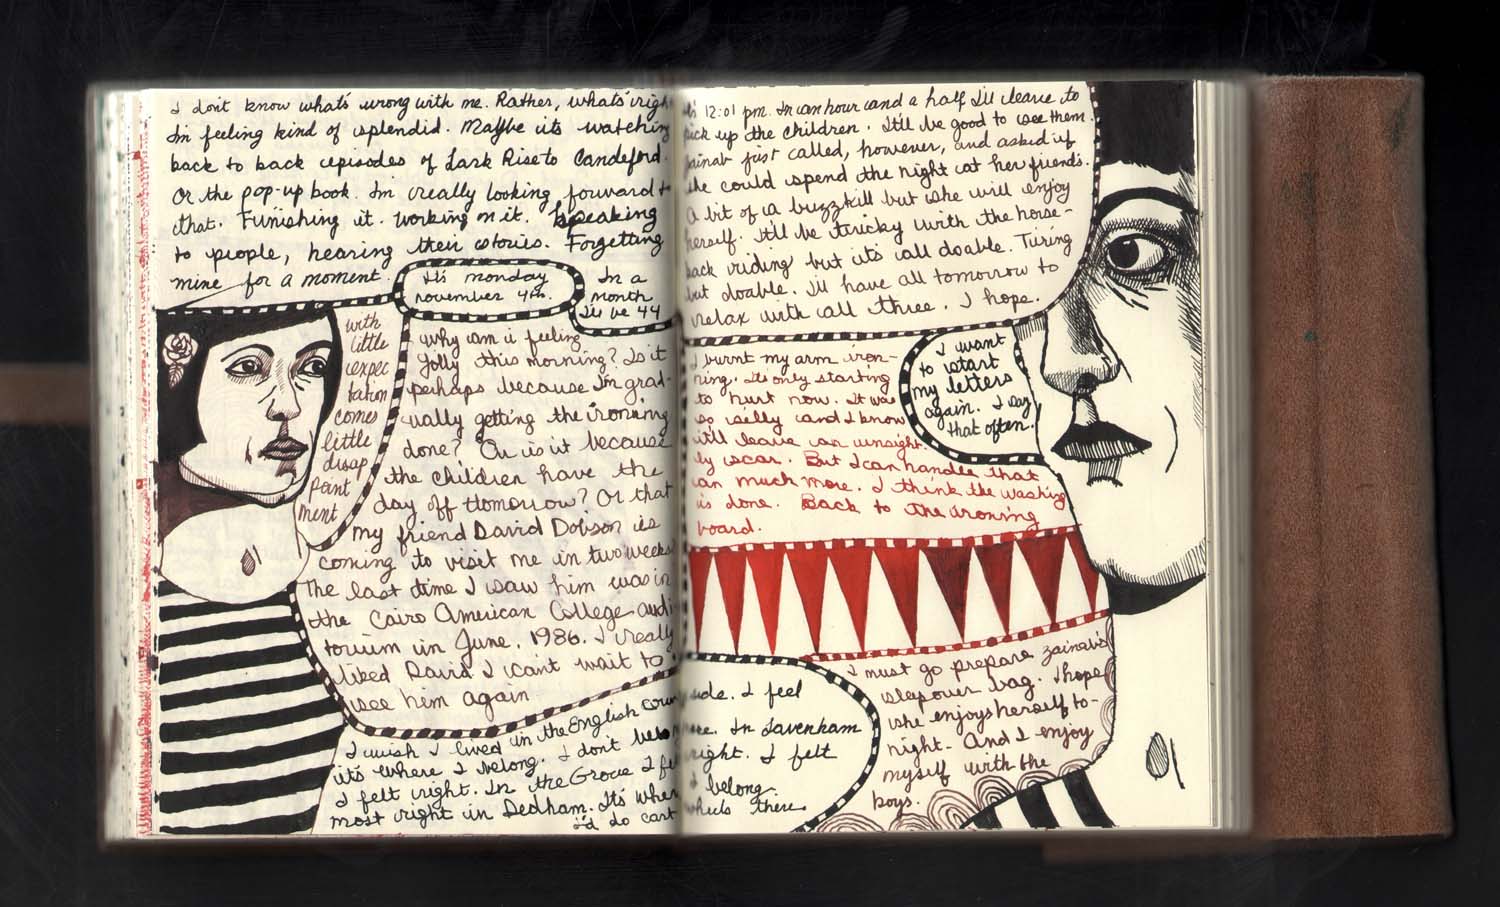 I don't know what's wrong with me. Rather, what's righ
I'm feeling kind of splendid. Maybe its watching
back to back episodes of Lark Rise to Candeford.
Or the pop-up book. I'm really looking forward to
that. Finishing it. Working on it. Speaking
to people, hearing their stories. Forgetting
mine for a moment.
It's monday
november 4th.
In a
month
I'll be 44
with
little
expec
tation
comes
little
disap
point
ment
why am i feeling
jolly this morning? Is it
perhaps because I'm grad-
ually getting the ironing
done? Or is it because
the children have the
day off tomorrow? Or that
my friend David Dobson is
coming to visit me in two weeks
The last time I saw him was in
the Cairo American College audi
torium in June, 1986. I really
liked David. I can't wait to
see him again.
I wish I lived in the English coun
it's where I belong. I don't
I felt right. In the Grove I fel
most right in Dedham. It's wher
I'd do cart
12:01 pm. In an hour and a half I'll leave to
pick up the children. It'll be good to see them.
Zainab just called, however, and asked if
she could spend the night at her friend's.
A bit of a buzzkill but she will enjoy
herself. It'll be tricky with the horse-
back riding but it's all doable. Tiring
but doable. I'll have all tomorrow to
relax with all three. I hope.
I burnt my arm iron-
ning. Its only starting
to hurt now. It was
so silly and I know
will leave an unsight
ly scar. But I can handle that
an much more. I think the washing
is done. Back to the ironing
board.
I want
to start
my letters
again. I say
that often.
side. I feel
In Lavenham
right. I felt
I belong.
wheels there
I must go prepare zainab's
sleepover bag. I hope
she enjoys herself to-
night. And I enjoy
myself with the
boys.